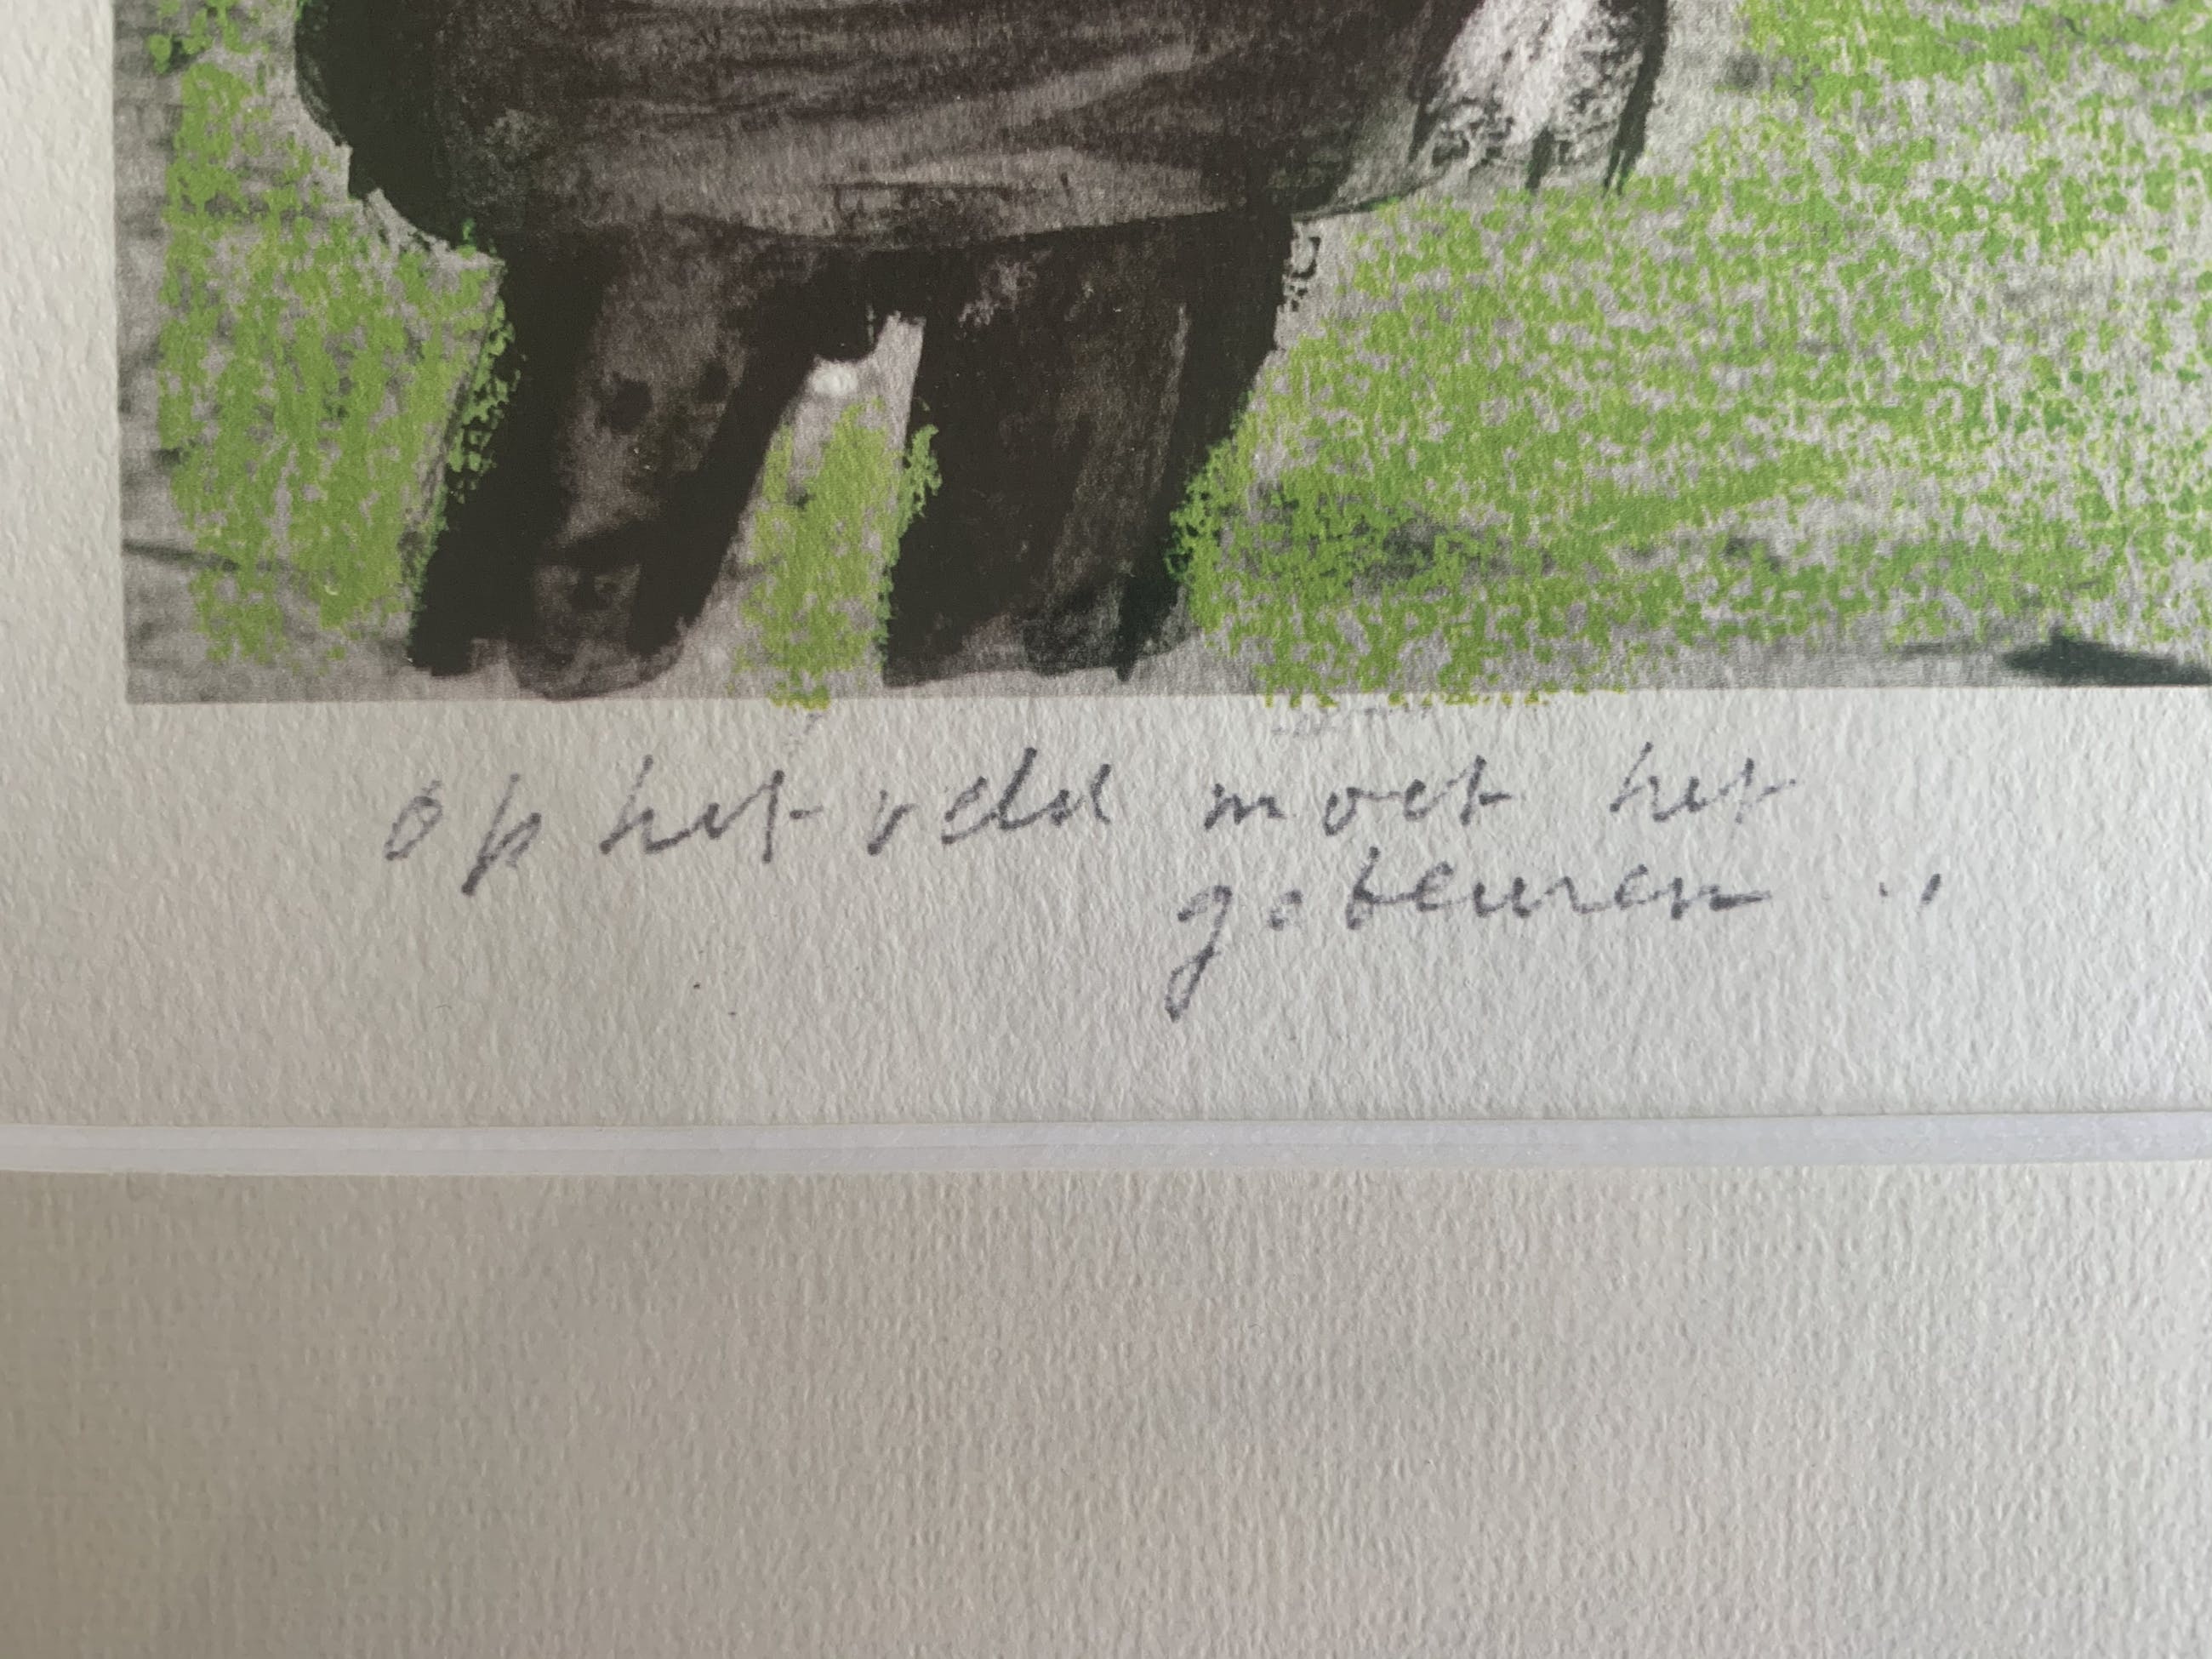 op het veld moet het
gebeuren ..